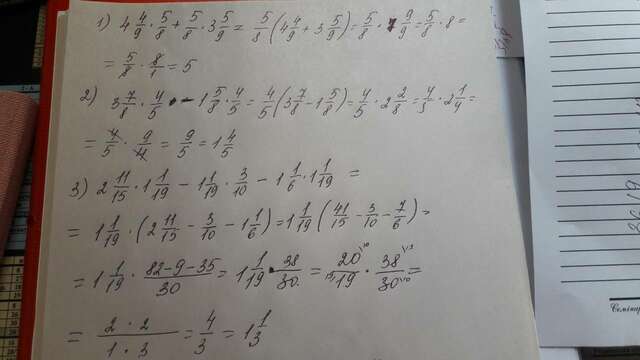 1) 4 4/9 · 5/8 + 5/8 · 3 5/9 = 5/8 (4 4/9 + 3 5/9) = 5/8 · 7 9/9 = 5/8 · 8 =
= 5/8 · 8/1 = 5
2) 3 7/8 · 4/5 - 1 5/8 · 4/5 = 4/5 (3 7/8 - 1 5/8) = 4/5 · 2 2/8 = 4/5 · 2 1/4 =
= 4/5 · 9/4 = 9/5 = 1 4/5
3) 2 11/15 · 1 1/19 - 1 1/19 · 3/10 - 1 1/6 · 1 1/19 =
= 1 1/19 · (2 11/15 - 3/10 - 1 1/6) = 1 1/19 (41/15 - 3/10 - 7/6) =
= 1 1/19 · 82-9-35/30 = 1 1/19 · 38/30 = 20/19 · 38/30 =
= 2 · 2/1 · 3 = 4/3 = 1 1/3